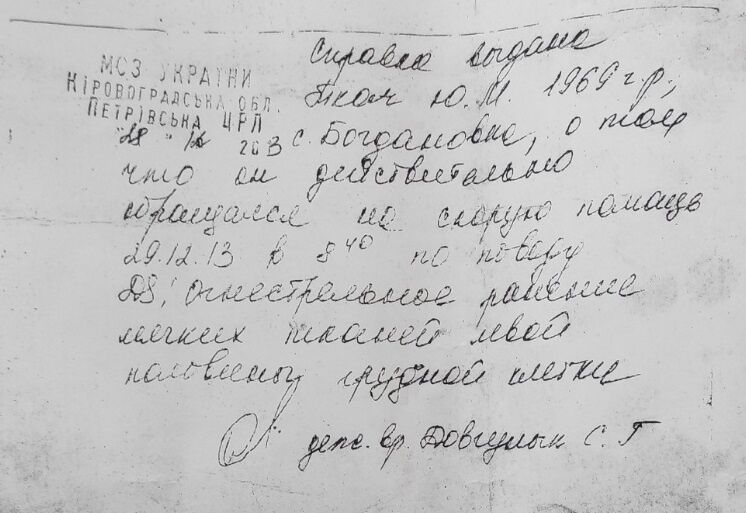 МСЗ УКРАЇНИ
КІРОВОГРАДСЬКА ОБЛ.
ПЕТРІВСЬКА ЦРЛ
"28" 12 2013
Справка выдана
Ткач Ю.М. 1969 г.р.,
с. Богдановка, о том
что он действительно
обращался на скорую помощь
29.12.13 в 8 40 по поводу
DS: Огнестрельное ранение
мягких тканей левой
половины грудной клетки
деж. вр. С. Г